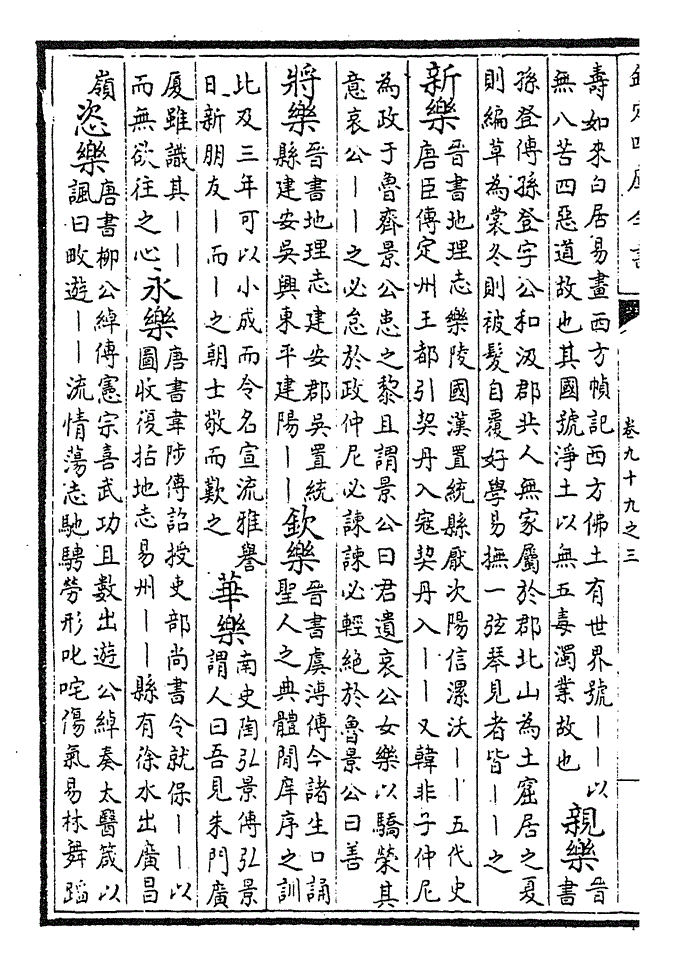 欽定四庫全書
卷九十九之三
壽如來白居易畫西方幀記西方佛土有世界號――以
無八苦四惡道故也其國號淨土以無五毒濁業故也
親樂
晉
書
孫登傳孫登字公和汲郡共人無家屬於郡北山為土窟居之夏
則編草為裳冬則被髮自覆好學易撫一弦琴見者皆――之
新樂
晉書地理志樂陵國漢置統縣厭次陽信漯沃――五代史
唐臣傳定州王都引契丹入寇契丹入――又韓非子仲尼
為政于魯齊景公患之黎且謂景公曰君遺哀公女樂以驕榮其
意哀公――之必怠於政仲尼必諫諫必輕絕於魯景公曰善
將樂
晉書地理志建安郡吳置統
縣建安吳興東平建陽――
欽樂
晉書虞溥傳今諸生口誦
聖人之典體閒庠序之訓
比及三年可以小成而令名宣流雅譽
日新朋友―而―之朝士敬而歎之
華樂
南史陶弘景傳弘景
謂人曰吾見朱門廣
厦雖識其――
而無欲往之心
永樂
唐書韋陟傳詔授吏部尚書令就保――以
圖收復括地志易州――縣有徐水出廣昌
嶺
恣樂
唐書柳公綽傳憲宗喜武功且數出遊公綽奏太醫箴以
諷曰畋遊――流情蕩志馳騁勞形叱咤傷氣易林舞蹈